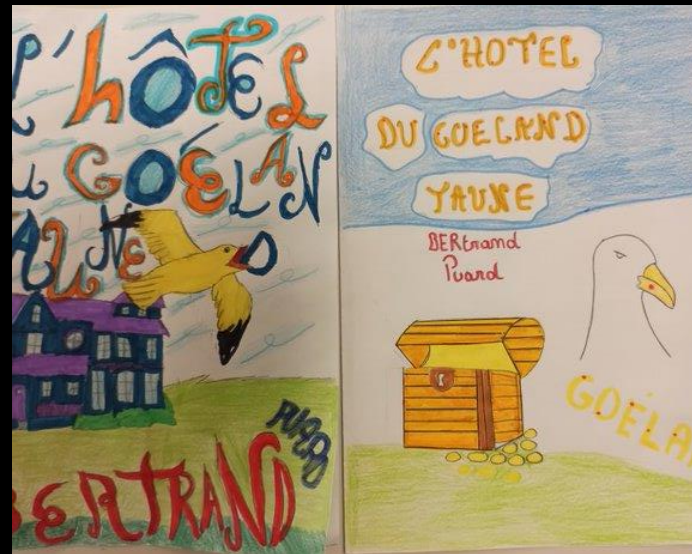 L'HÔTEL
U GOÉLAN
AUNE D
PUARD
BERTRAND
L'HOTEL
DU GOELAND
JAUNE
BERtrand
Puard
GOÉLA